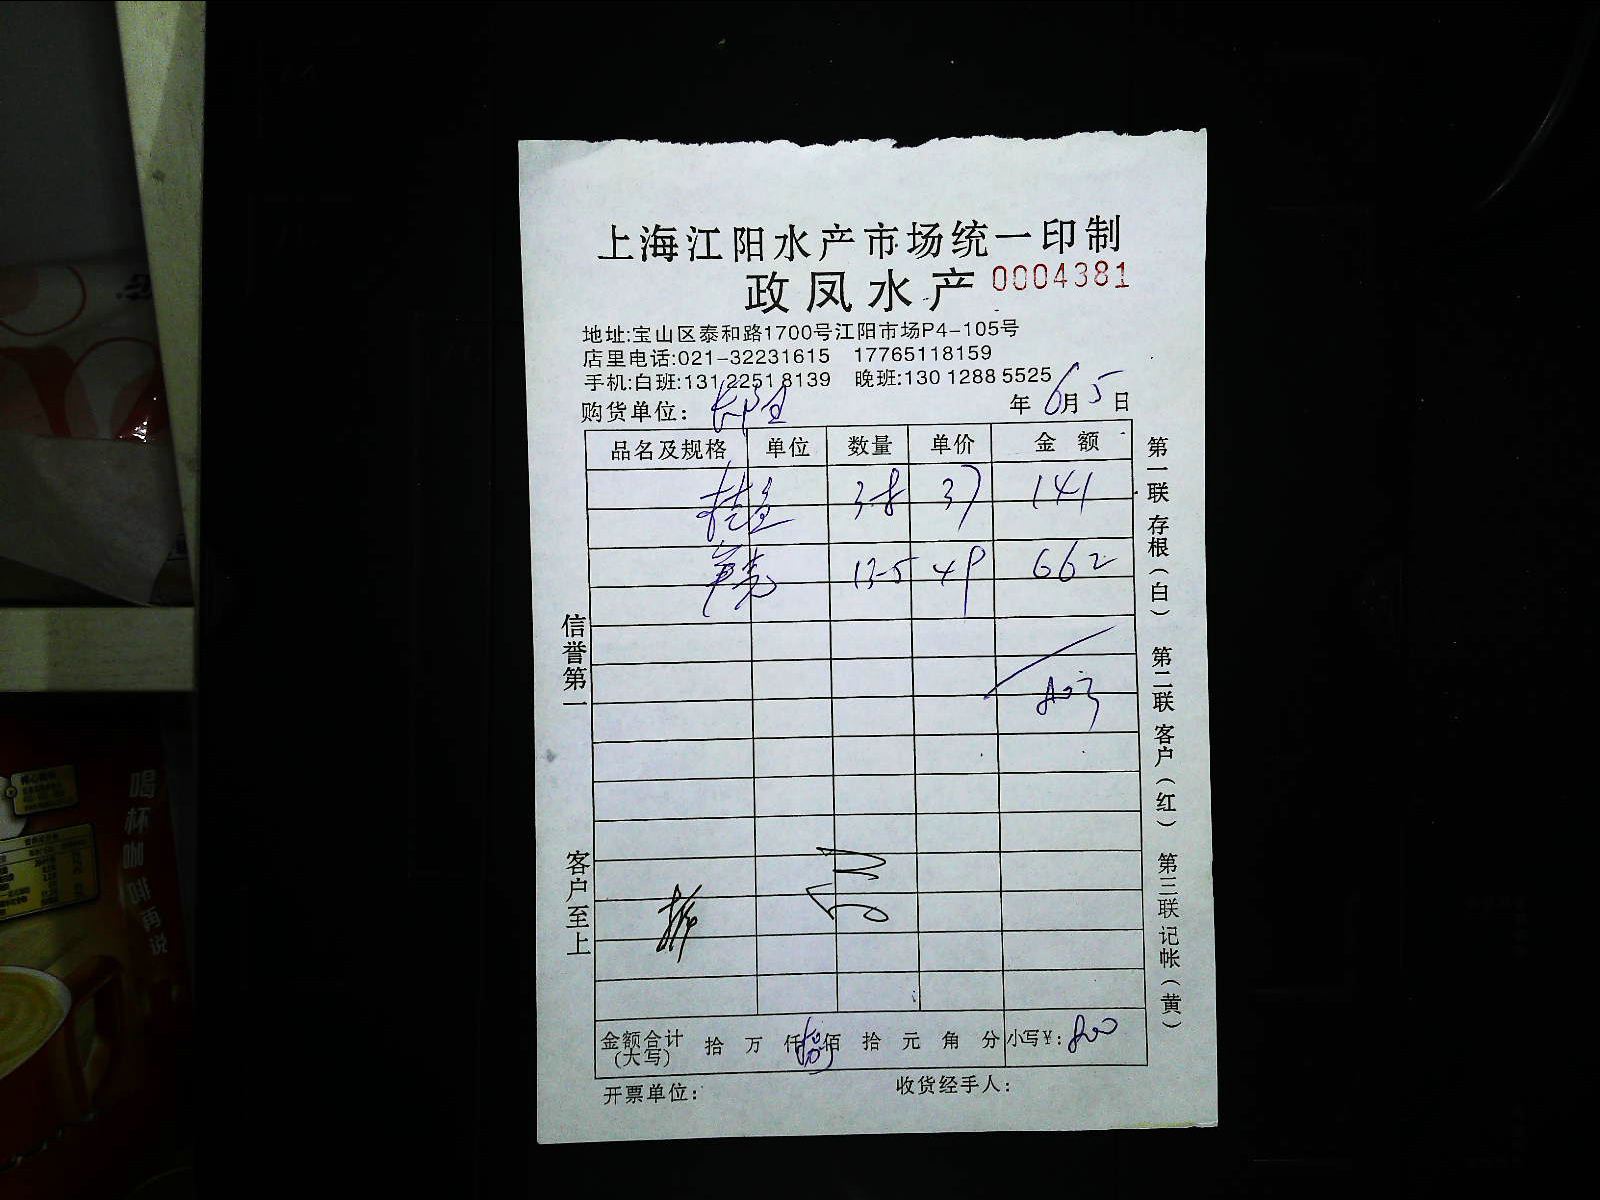 上海江阳水产市场统一印制
政凤水产 0004381
地址:宝山区泰和路1700号江阳市场P4-105号
店里电话:021-32231615 17765118159
手机:白班:131 2251 8139 晚班:130 1288 5525
购货单位: 年 6月 5日
品名及规格 单位 数量 单价 金额
桂鱼 3-8 37 141
13-5 49 662
803
金额合计(大写) 拾 万 仟 佰 拾 元 角 分 小写¥: 800
开票单位: 收货经手人:
信誉第一
客户至上
第一联 存根(白)
第二联 客户(红)
第三联 记帐(黄)
喝杯咖啡再说